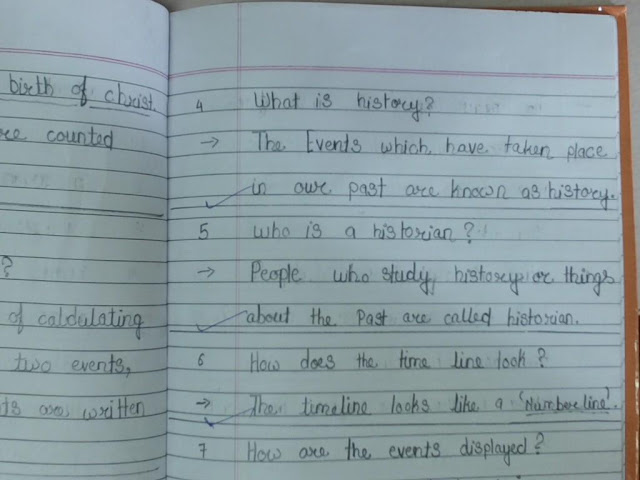 birth of christ.
re counted
?
of caldulating
two events,
ts are written
4 What is history?
→ The Events which have taken place
in our past are known as history.
5 who is a historian?
→ People who study history or things
about the Past are called historian.
6 How does the time line look?
→ The timeline looks like a 'Number line'.
7 How are the events displayed?